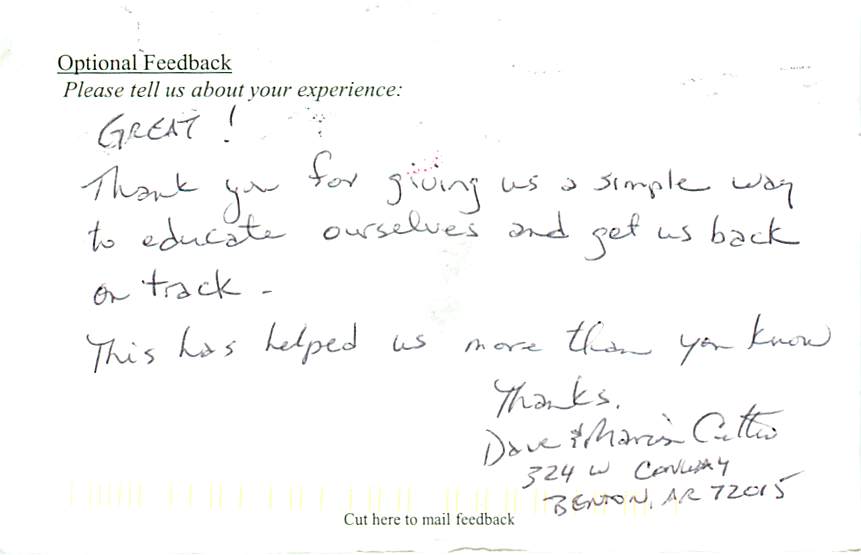 Optional Feedback
Please tell us about your experience:
GREAT !
Thank you for giving us a simple way
to educate ourselves and get us back
on track -
This has helped us more than you know
Thanks.
Dave &
324 W CONWAY
BENTON, AR 72015
Cut here to mail feedback